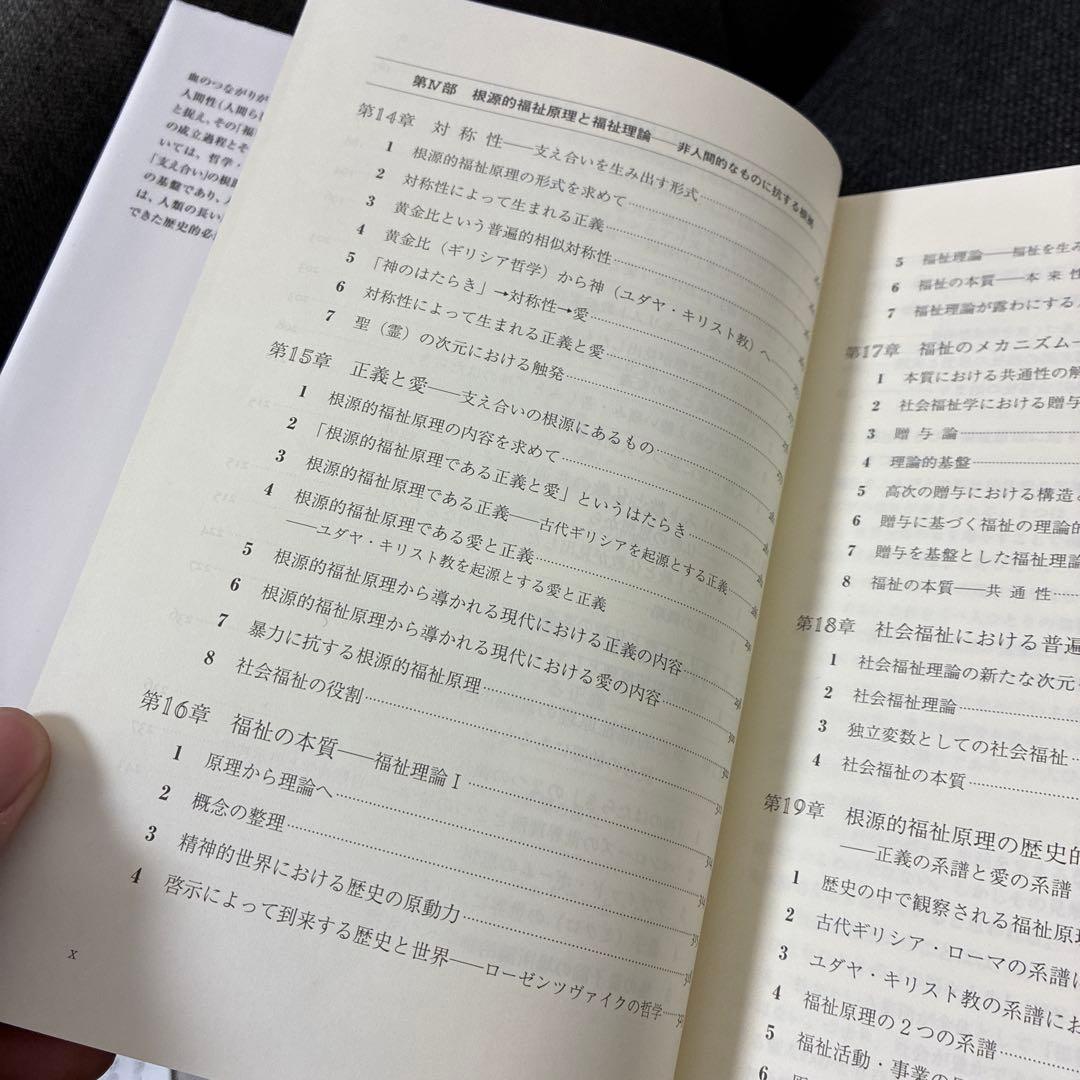 血のつながりが
人間性(人間ら
と捉え、その「福
の成立過程とそ
いては、哲学・
「支え合い」の根
の基盤であり、
は、人類の長い
できた歴史的必
第Ⅳ部 根源的福祉原理と福祉理論——非人間的なものに抗する
第14章 対称性——支え合いを生み出す形式
1 根源的福祉原理の形式を求めて
2 対称性によって生まれる正義
3 黄金比という普遍的相似対称性
4 黄金比(ギリシア哲学)から神(ユダヤ・キリスト教)へ
5 「神のはたらき」→対称性→愛
6 対称性によって生まれる正義と愛
7 聖(霊)の次元における触発
第15章 正義と愛——支え合いの根源にあるもの
1 根源的福祉原理の内容を求めて
2 「根源的福祉原理である正義と愛」というはたらき
3 根源的福祉原理である正義——古代ギリシアを起源とする正義
4 根源的福祉原理である愛と正義
——ユダヤ・キリスト教を起源とする愛と正義
5 根源的福祉原理から導かれる現代における正義の内容
6 根源的福祉原理から導かれる現代における愛の内容
7 暴力に抗する根源的福祉原理
8 社会福祉の役割
第16章 福祉の本質——福祉理論Ⅰ
1 原理から理論へ
2 概念の整理
3 精神的世界における歴史の原動力
4 啓示によって到来する歴史と世界——ローゼンツヴァイクの哲学
x
5 福祉理論——福祉を生み
6 福祉の本質——本来性
7 福祉理論が露わにする
第17章 福祉のメカニズム
1 本質における共通性の解
2 社会福祉学における贈与
3 贈与論
4 理論的基盤
5 高次の贈与における構造
6 贈与に基づく福祉の理論的
7 贈与を基盤とした福祉理論
8 福祉の本質——共通性
第18章 社会福祉における普遍
1 社会福祉理論の新たな次元
2 社会福祉理論
3 独立変数としての社会福祉
4 社会福祉の本質
第19章 根源的福祉原理の歴史的
——正義の系譜と愛の系譜
1 歴史の中で観察される福祉原理
2 古代ギリシア・ローマの系譜に
3 ユダヤ・キリスト教の系譜にお
4 福祉原理の2つの系譜
5 福祉活動・事業の
6